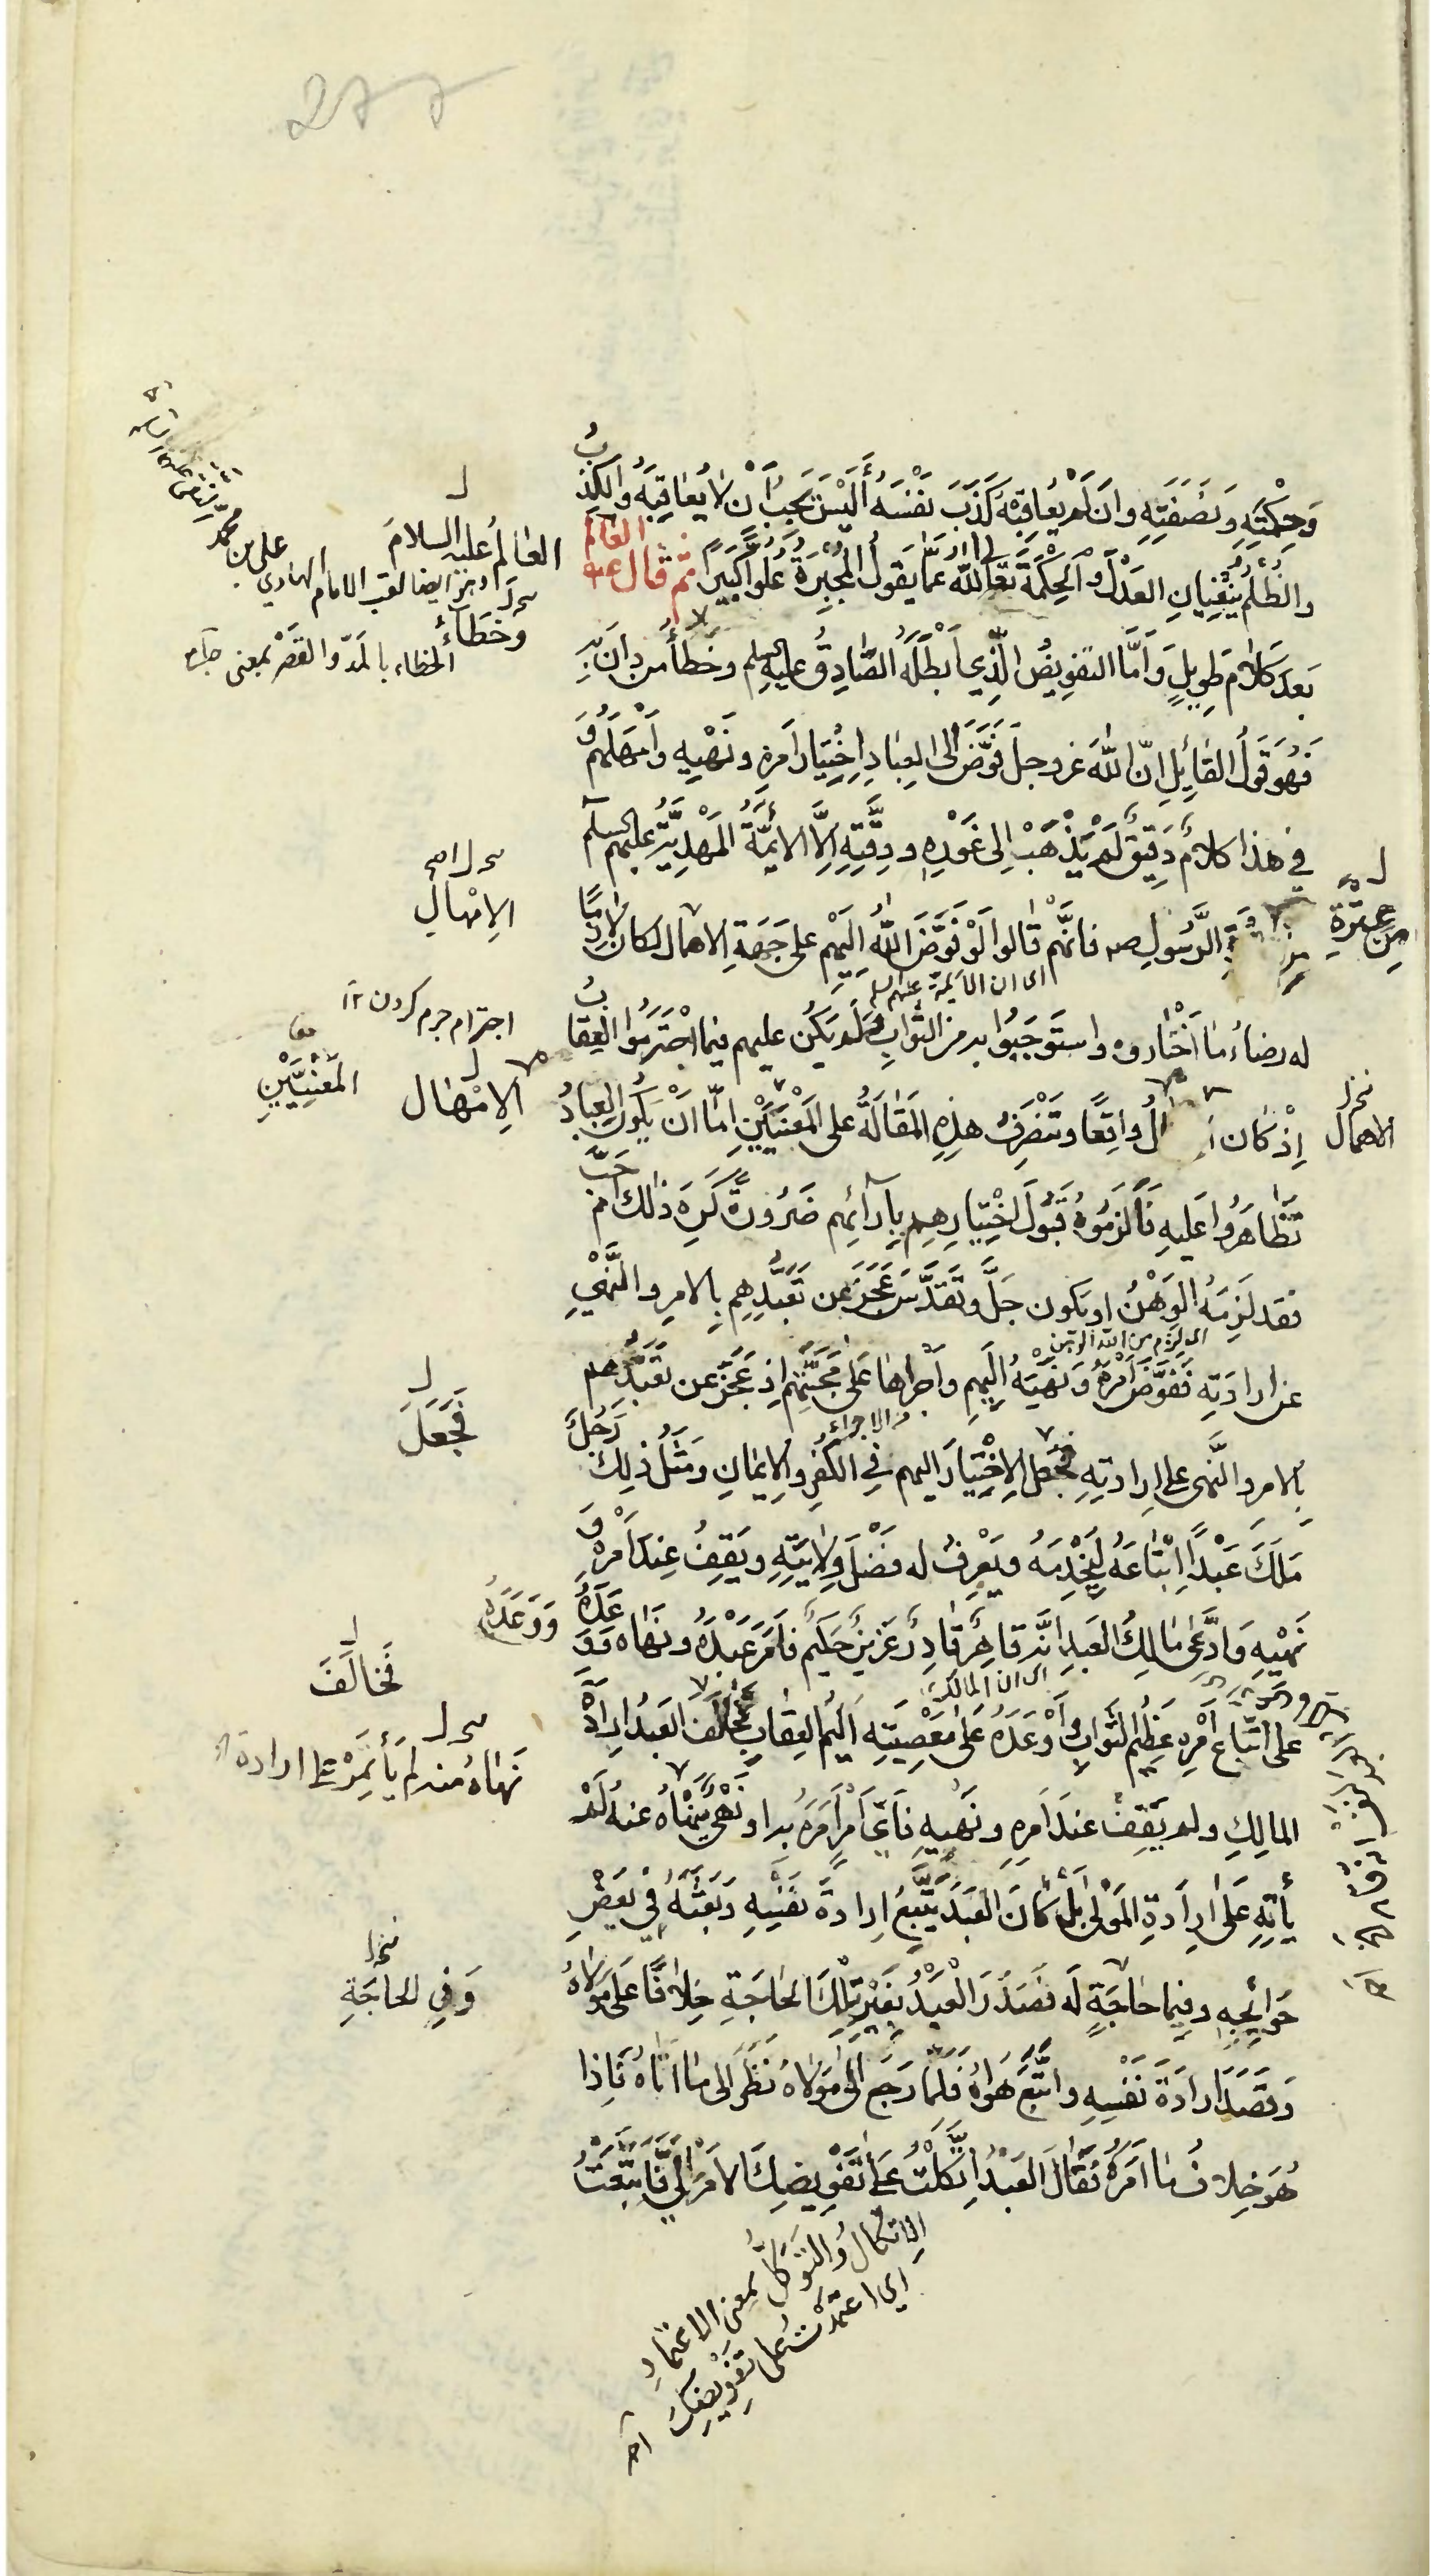 277
وَحِكْمَتِهِ وَنَصَفَتِهِ وَاِن لَم يُعاقِبْهُ كَذَّبَ نَفْسَهُ أَلَيْسَ يَجِبُ أَنْ لا يُعاقِبَهُ وَالكَذِبُ
والظُلْمُ يَنْفِيانِ العَدْلَ وَالحِكْمَةَ تَعالَى اللّهُ عَمّا يَقُولُ المُجْبِرَةُ عُلُوًّا كَبيرًا ثمّ قال العالم ع
بَعدَ كَلامٍ طَوِيلٍ وَاَمَّا التفوِيضُ الَّذِي اَبْطَلَهُ الصّادِقُ عليه السلم وخَطأَ من دانَ بِهِ
فَهُوَ قَولُ القائِلِ اِنّ اللّهَ عز وجلّ فَوَّضَ الى العِبادِ اِخْتِيارَ اَمرِهِ ونَهْيِهِ وأَهْمَلَهُم وَ
في هذا كلامٌ دَقِيقٌ لَم يَذْهَبْ اِلى غَوْرِهِ ودِقَّتِهِ اِلّا الائِمَّةُ المَهْدِيَّةُ عليهم السلم
الرَّسُولِ ص فانَّهُم قالوا لَوْ فَوَّضَ اللّهُ اِلَيْهِم على جهَةِ الاهمال لكان لازمًا
اى ان الائمة عليهم السلم
له رضاءُ ما اخْتاروه واستَوجَبُوا به من الثَّوابِ ولَم يَكُن عليهم فيما اجْتَرَمُوا العِقابُ
اِذْ كان الُ واقِعًا وتَنْصَرِفُ هذِهِ المَقالَةُ على المَعْنَيَيْنِ اِمّا اَنْ يَكُونَ العِبادُ
تَظاهَرُوا عَلَيهِ فَأَلزَمُوهُ قَبُولَ اخْتِيارِهِم بِآرائِهِم ضَرُورَةً كَرِهَ ذلك ام اَحَبَّ
فقد لَزِمَهُ الوَهْنُ او يكون جَلَّ وتَقَدَّسَ عَجَزَ عن تَعَبُّدِهِم بِالامرِ والنَّهْيِ
عن ارادَتِهِ فَفَوَّضَ اَمْرَهُ ونَهْيَهُ اِلَيهِم وأَجراها عَلى مَحَبَّتِهِم اِذ عَجَزَ عن تعَبُّدِهم
بالامر والنَّهى على ارادتِهِ فجَعلَ الاِخْتِيارَ اليهم في الكُفرِ والاِيمانِ ومَثَلُ ذلِكَ رَجُلٌ
مَلَكَ عَبْدًا اِبْتاعَهُ لِيَخْدِمَهُ ويَعْرِفَ له فَضْلَ وِلايَتِهِ ويَقِفُ عِندَ اَمْرِهِ وَ
نَهْيِهِ وَادَّعى مالِكُ العَبدِ اِنَّهُ قاهِرٌ قادِرٌ عَزيزٌ حَكيمٌ فأَمَرَ عَبْدَهُ ونَهاهُ ووَعَدَهُ
اى ان المالك
على اتّباعِ اَمْرِهِ عَظيمَ الثَّوابِ وَأَوْعَدَهُ عَلى مَعْصِيَتِهِ اَليمَ العِقابِ فخالَفَ العَبدُ اِرادَةَ
المالِكِ ولم يَقِفْ عندَ اَمرِهِ ونَهْيِهِ فأَىَّ اَمْرٍ اَمَرَهُ به او نَهْىٍ نَهاهُ عنهُ لَمْ
يأتِهِ عَلى اِرادَةِ المَوْلى بَل كانَ العَبْدُ يَتَّبِعُ اِرادَةَ نَفْسِهِ وبَعَثَهُ في بَعْضِ
حَوائِجِهِ وفيما حاجَةٍ لَه فصَدَرَ العَبْدُ بِغَيْرِ تِلْكَ الحاجَةِ خِلافًا عَلى مَولاهُ
وقَصَدَ اِرادَةَ نَفْسِهِ واتَّبَعَ هَواهُ فَلَمّا رَجَعَ اِلى مَولاهُ نَظَرَ اِلى ما اَتاهُ فَاِذا
هُوَ خِلافُ ما اَمَرَهُ فَقالَ العَبْدُ اِتَّكَلْتُ على تَفْوِيضِكَ الاَمرَ اِليَّ فَاتَّبَعْتُ
العالمُ عليه السلامَ
وهذا ايضا لقب الامام الهادي
على بن محمد
وخَطَاءُ
الخطاء بالمدّ والقصر بمعنى
الاِمْهالِ
اجترام جرم كردن ١٢
المَعْنِيَّيْنِ
الاِمْهال
فَجَعَلَ
وَوَعَدَهُ
فَخالَفَ
نَهاهُ عنه لم يأتَمِرْ على ارادة
وَفي الحاجَةِ
مِن عِتْرَةِ
الاهمال
الاتّكالُ والتوكّلُ بمعنى الاعتمادِ
اى اعتمَدْتُ على تفويضِكَ